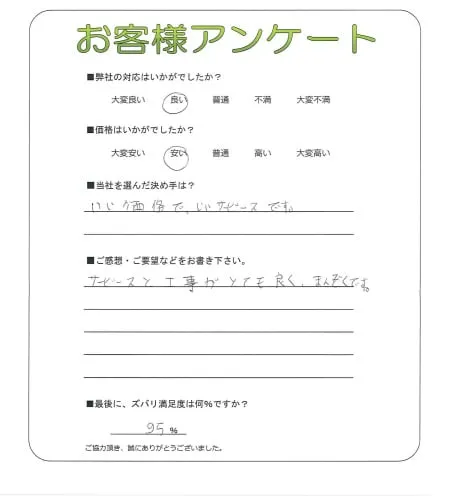 お客様アンケート
■弊社の対応はいかがでしたか？
大変良い 良い 普通 不満 大変不満
■価格はいかがでしたか？
大変安い 安い 普通 高い 大変高い
■当社を選んだ決め手は？
いい価格で、いいサービースです。
■ご感想・ご要望などをお書き下さい。
サービースと工事がとても良く、まんぞくです。
■最後に、ズバリ満足度は何％ですか？
95 %
ご協力頂き、誠にありがとうございました。